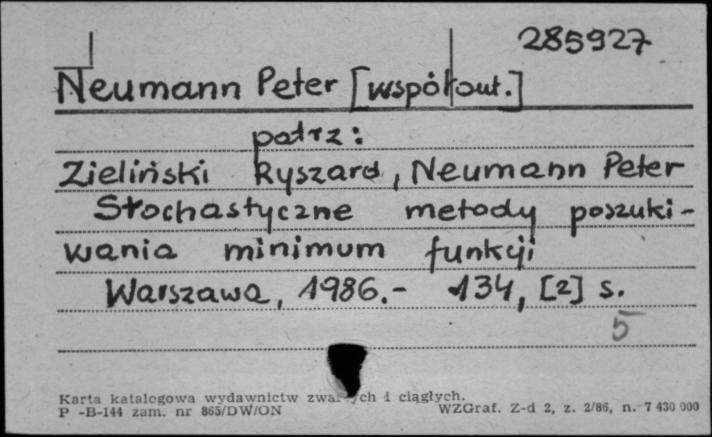 285927
Neumann Peter [współaut.]
patrz:
Zieliński Ryszard, Neumann Peter
Stochastyczne metody poszuki-
wania minimum funkcji
Warszawa, 1986.- 134, [2] s.
5
Karta katalogowa wydawnictw zwartych i ciągłych.
P -B-144 zam. nr 865/DW/ON WZGraf. Z-d 2, z. 2/86, n. 7 430 000